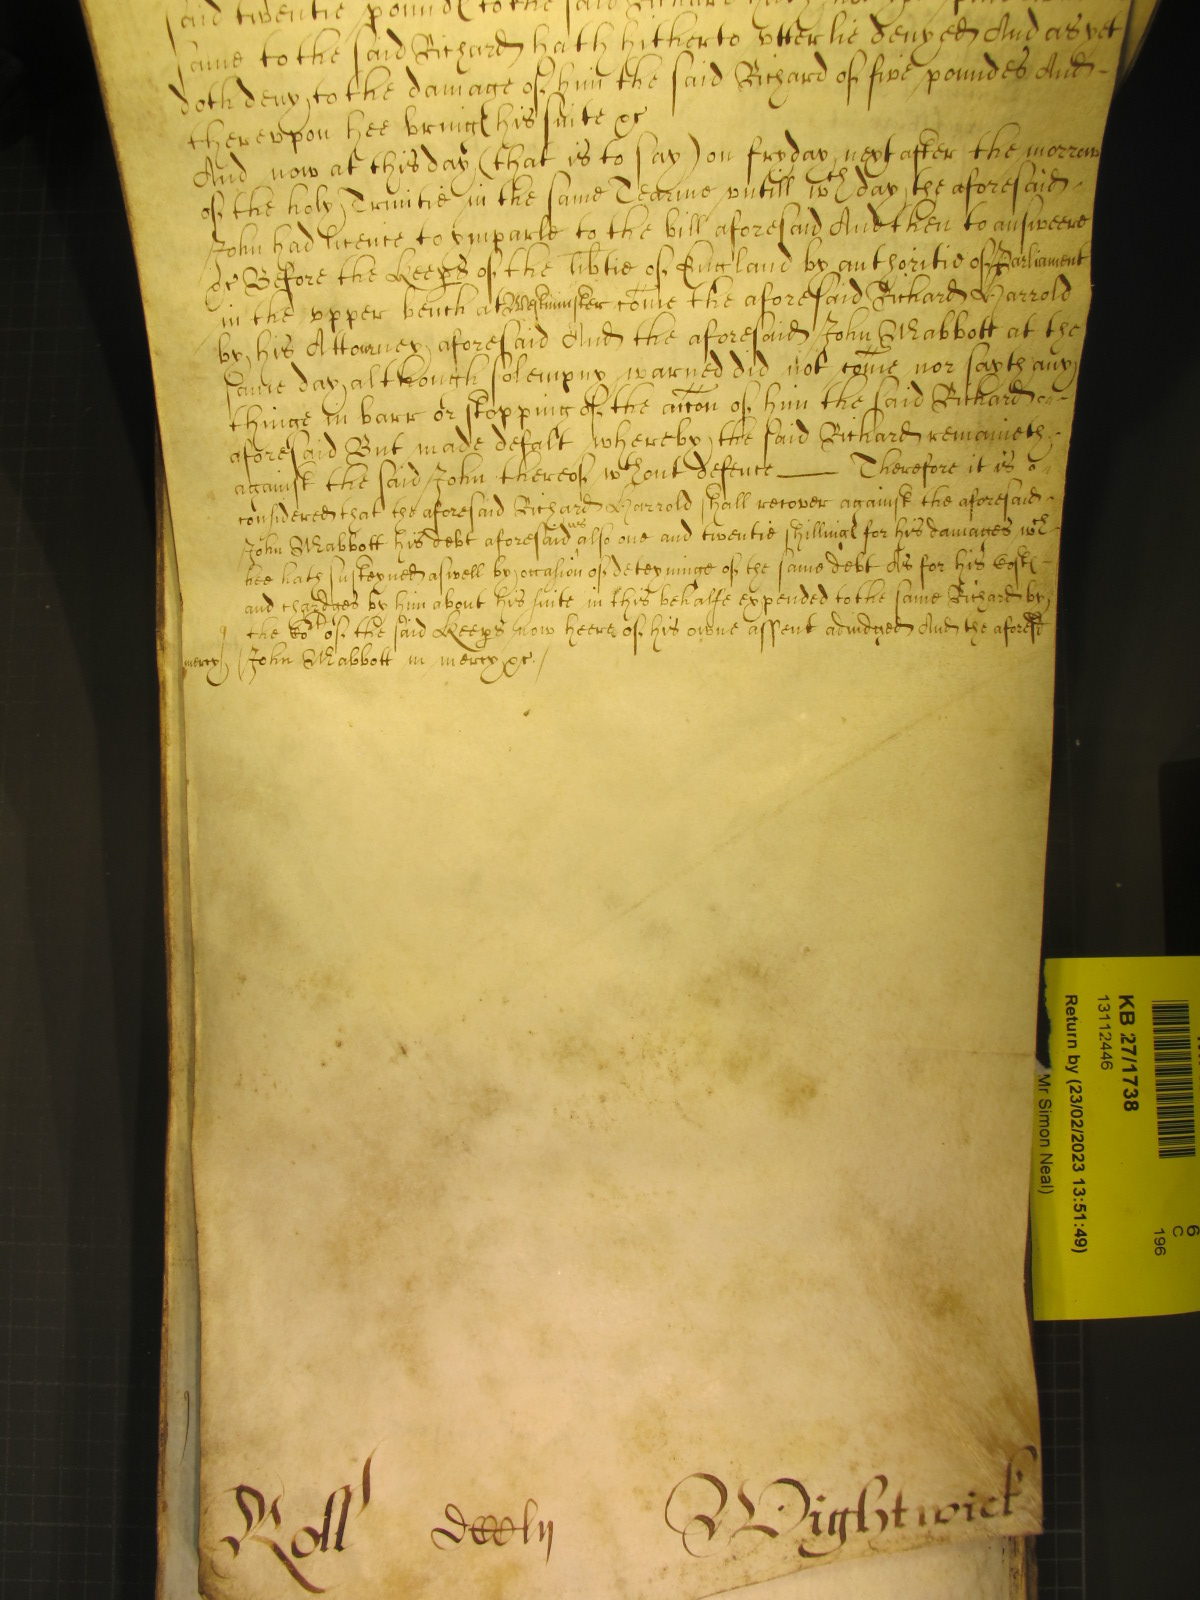 said twentie pounds to the said Richard hath
same to the said Richard hath hitherto utterlie denyed And as yet
doth deny, to the damage of him the said Richard of five poundes And
thereupon hee bringes his suite &c
And now at this day (that is to say) on fryday next after the morrow
of the holy Trinitie in the same Tearme untill wch day the aforesaid
John had licence to imparle to the bill aforesaid And then to answeere
&c Before the Keeprs of the libtie of England by authoritie of Parliament
in the upper bench at Westminster come the aforesaid Richard Harrold
by his Attorney aforesaid And the aforesaid John Mabbott at the
same day although solempny warned did not come nor sayth any
thinge in barr or stopping of the accon of him the said Richard
aforesaid But made defalt whereby the said Richard remaineth
against the said John thereof wthout defence Therefore it is
considered that the aforesaid Richard Harrold shall recover against the aforesaid
John Mabbott his debt aforesaid as also one and twentie shillings for his damages wch
hee hath susteyned aswell by occasion of deteyninge of the same debt As for his Costs
and chardges by him about his suite in this behalfe expended to the same Richard by
the Cort of the said Keeprs now heere of his owne assent adiudged And the aforesd
mercy John Mabbott in mercy &c.
Roll dccclij Wightwick
KB 27/1738
13112446
Return by (23/02/2023 13:51:49)
Mr Simon Neal)
6
C
196